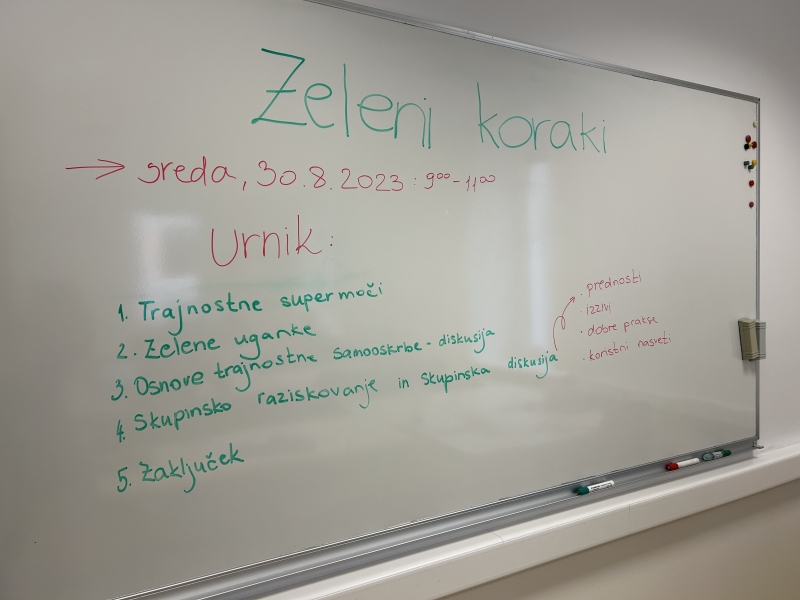 Zeleni koraki
→ sreda, 30.8.2023 : 9⁰⁰-11⁰⁰
Urnik:
1. Trajnostne supermoči
2. Zelene uganke
3. Osnove trajnostne samooskrbe - diskusija
4. Skupinsko raziskovanje in skupinska diskusija
· prednosti
· izzivi
· dobre prakse
· koristni nasveti
5. Zaključek